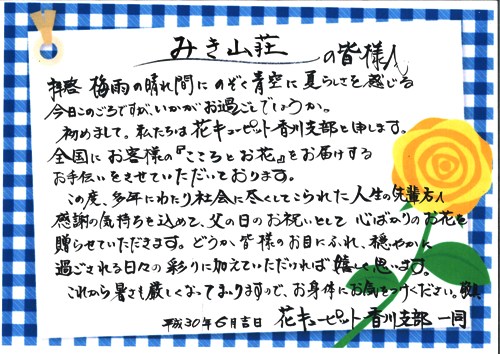 みき山荘 の皆様へ
拝啓 梅雨の晴れ間にのぞく青空に夏らしさを感じる
今日このごろですが、いかがお過ごしでしょうか。
初めまして。私たちは花キューピット香川支部と申します。
全国にお客様の『こころとお花』をお届けする
お手伝いをさせていただいております。
この度、多年にわたり社会に尽くしてこられた人生の先輩方へ
感謝の気持ちを込めて、父の日のお祝いとして心ばかりのお花を
贈らせていただきます。どうか皆様のお目にふれ、穏やかに
過ごされる日々の彩りに加えていただければ嬉しく思います。
これから暑さも厳しくなってまいりますので、お身体にお気をつけください。敬具
平成30年6月吉日 花キューピット香川支部 一同